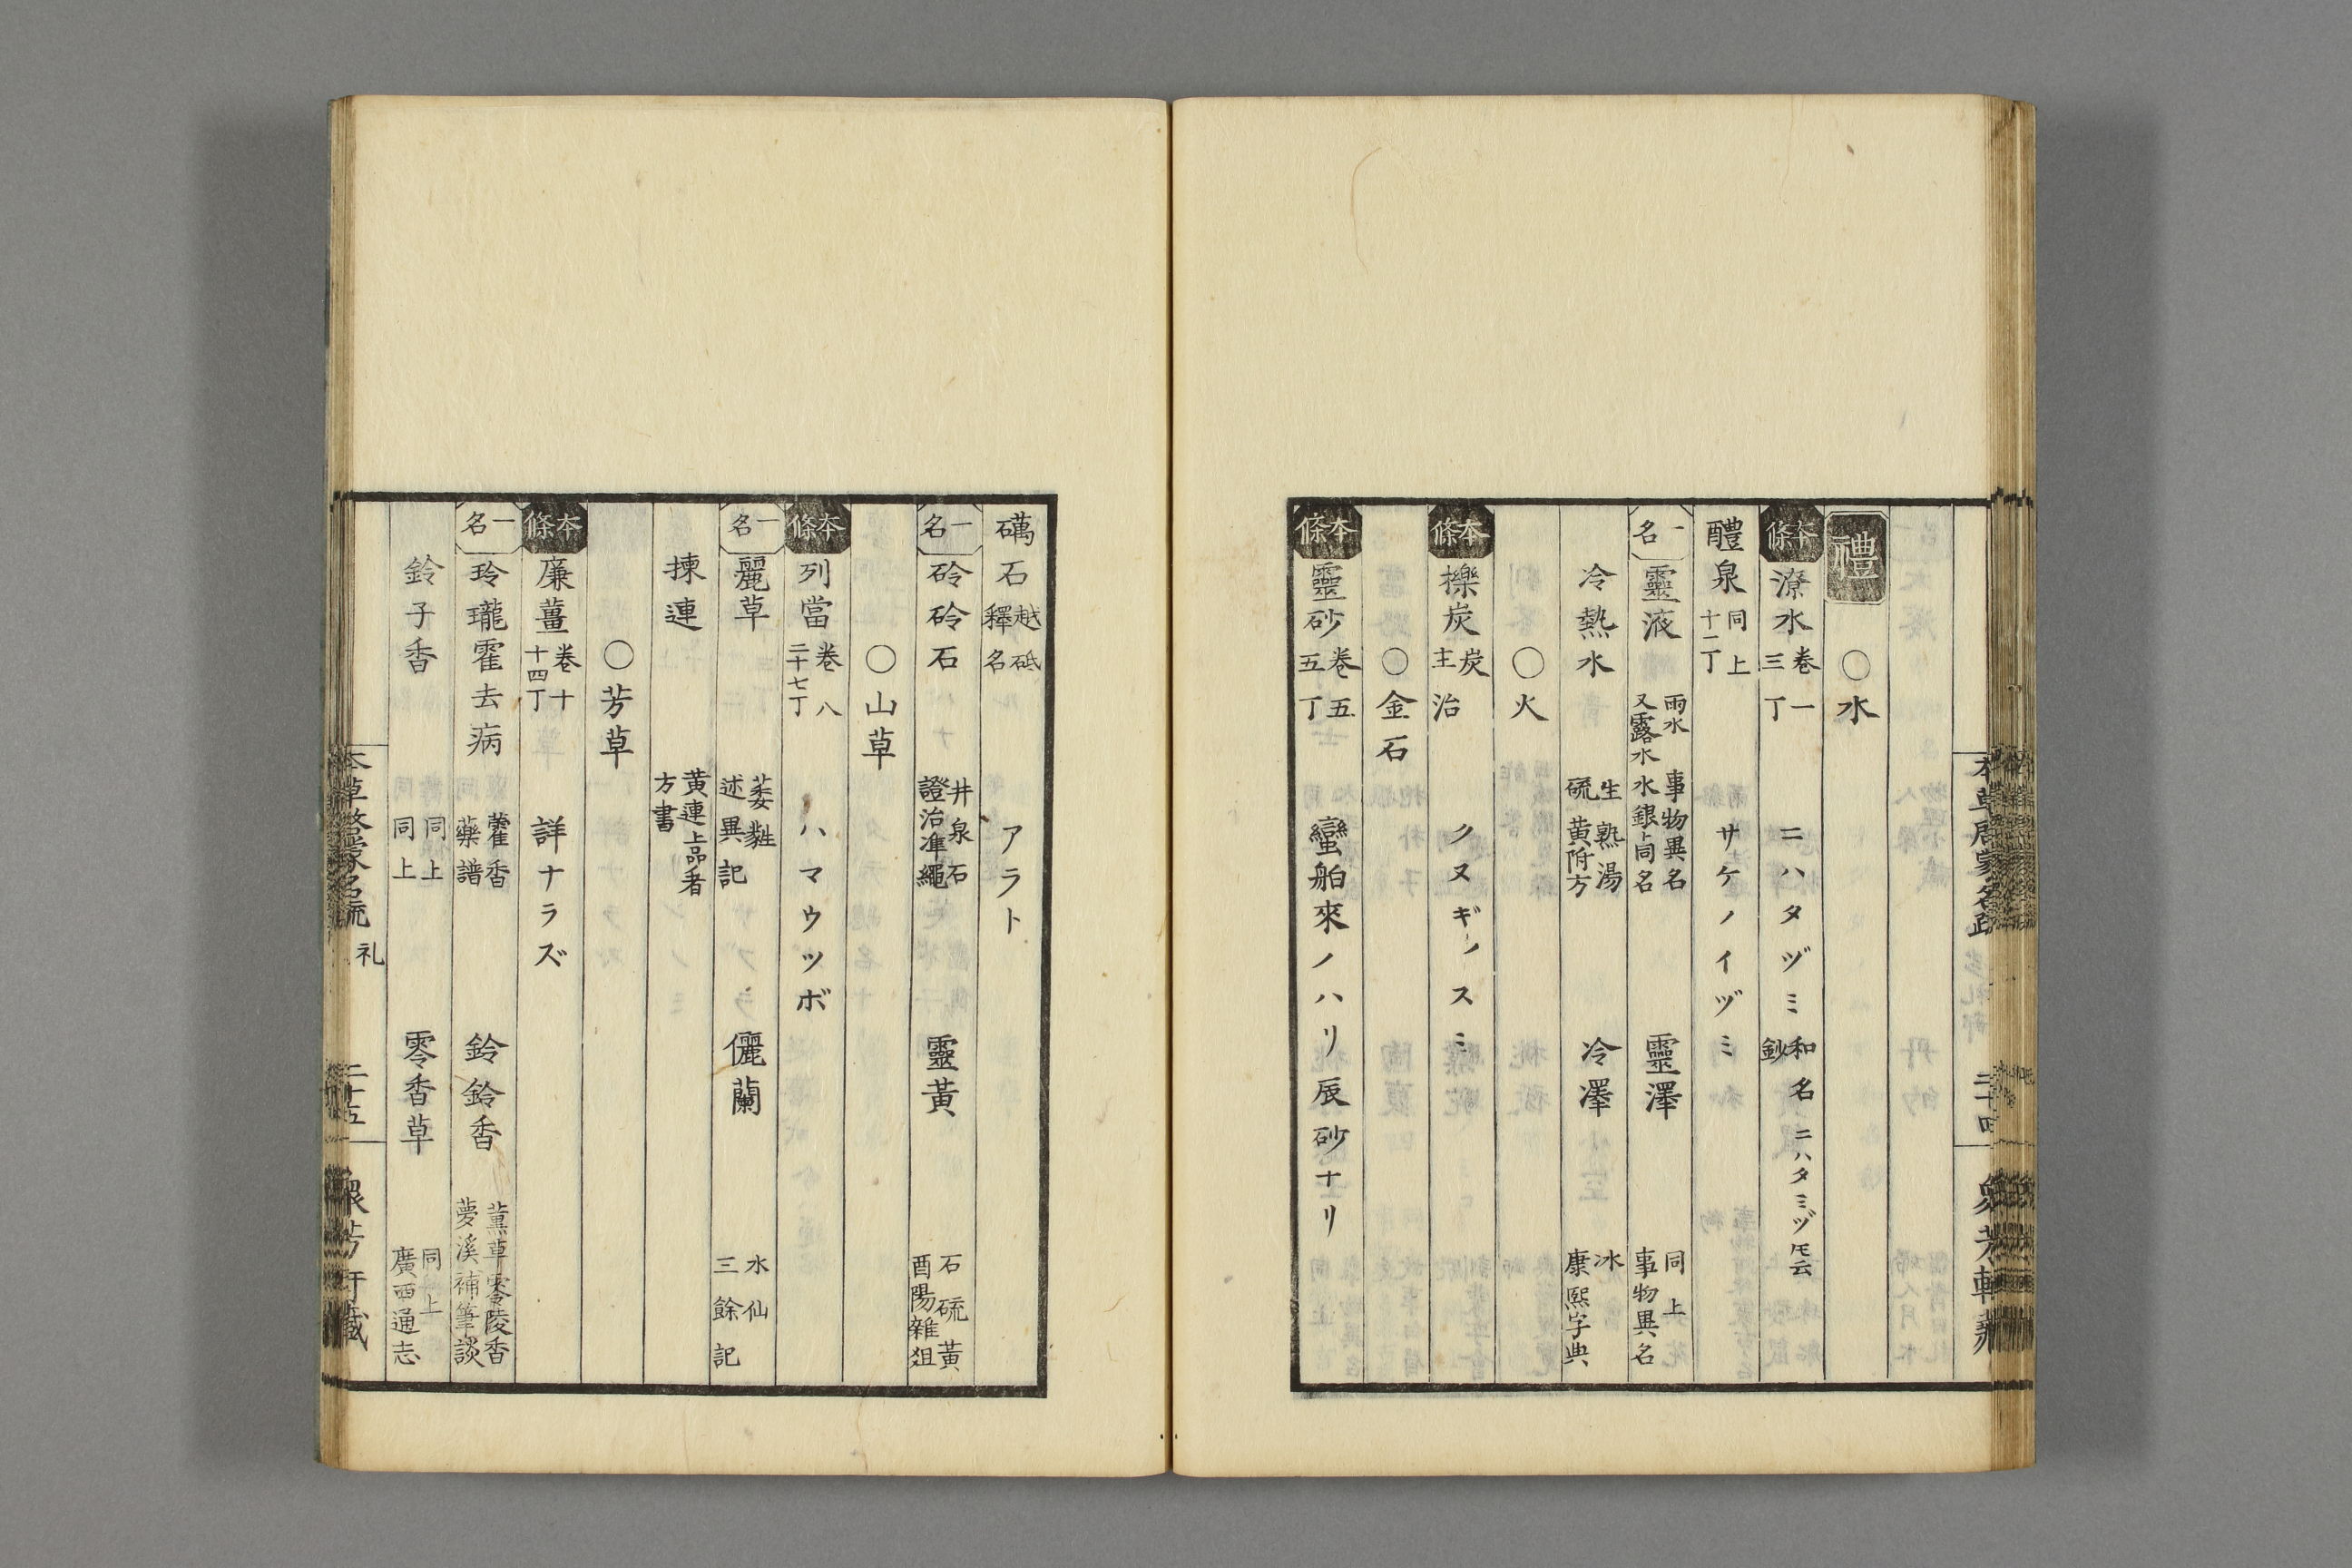 禮
○水
本條 潦水 卷一三丁 ニハタヅミ 和名鈔 ニハタミヅ 𪜈云
醴泉 同上十一丁 サケノイヅミ
一名 靈液 雨水 事物異名 又露水 水銀 上同名 靈澤 同上 事物異名
冷熱水 生熟湯 硫黄附方 冷澤 冰 康熙字典
○火
本條 櫟炭 炭主治 クヌギノスミ
○金石
本條 靈砂 卷五五丁 蠻舶來ノハリ辰砂ナリ
本草啓蒙名疏 二十四 衆芳軒藏
礪石 越砥釋名 アラト
一名 砱砱石 井泉石 證治準繩 靈黃 石硫黃 酉陽雜俎
○山草
本條 列當 卷八二十七丁 ハマウツボ
一名 麗草 萎㽔 述異記 儷蘭 水仙 三餘記
揀連 黄連上品者 方書
○芳草
本條 廉薑 卷十十四丁 詳ナラズ
一名 玲瓏霍去病 藿香 藥譜 鈴鈴香 薰草零陵香 夢溪補筆談
鈴子香 同上 同上 零香草 同上 廣西通志
本草啓蒙名疏 礼 二十五 衆芳軒藏